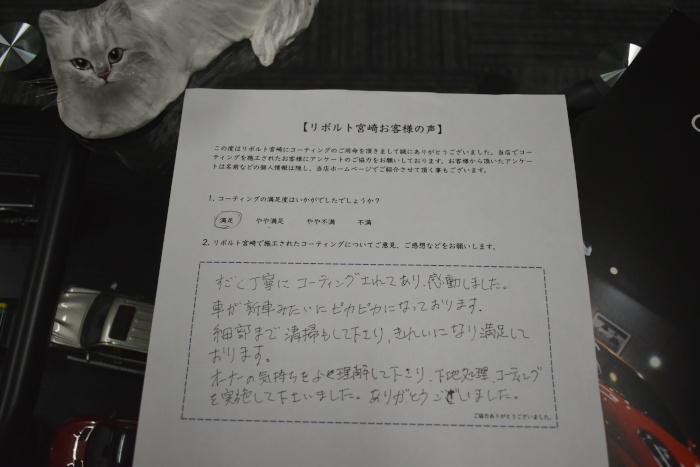 【リボルト宮崎お客様の声】
この度はリボルト宮崎にコーティングのご用命を頂きまして誠にありがとうございました。当店でコー
ティングを施工されたお客様にアンケートのご協力をお願いしております。お客様から頂いたアンケー
トは名前などの個人情報は隠し、当店ホームページでご紹介させて頂く事もございます。
1. コーティングの満足度はいかがでしたでしょうか?
満足 やや満足 やや不満 不満
2. リボルト宮崎で施工されたコーティングについてご意見、ご感想などをお願いします。
すごく丁寧にコーティングされてあり、感動しました。
車が新車みたいにピカピカになっております.
細部まで清掃もして下さり、きれいになり満足して
おります。
オーナーの気持ちをよく理解して下さり、下地処理、コーティング
を実施して下さいました。ありがとうございました。
ご協力ありがとうございました。